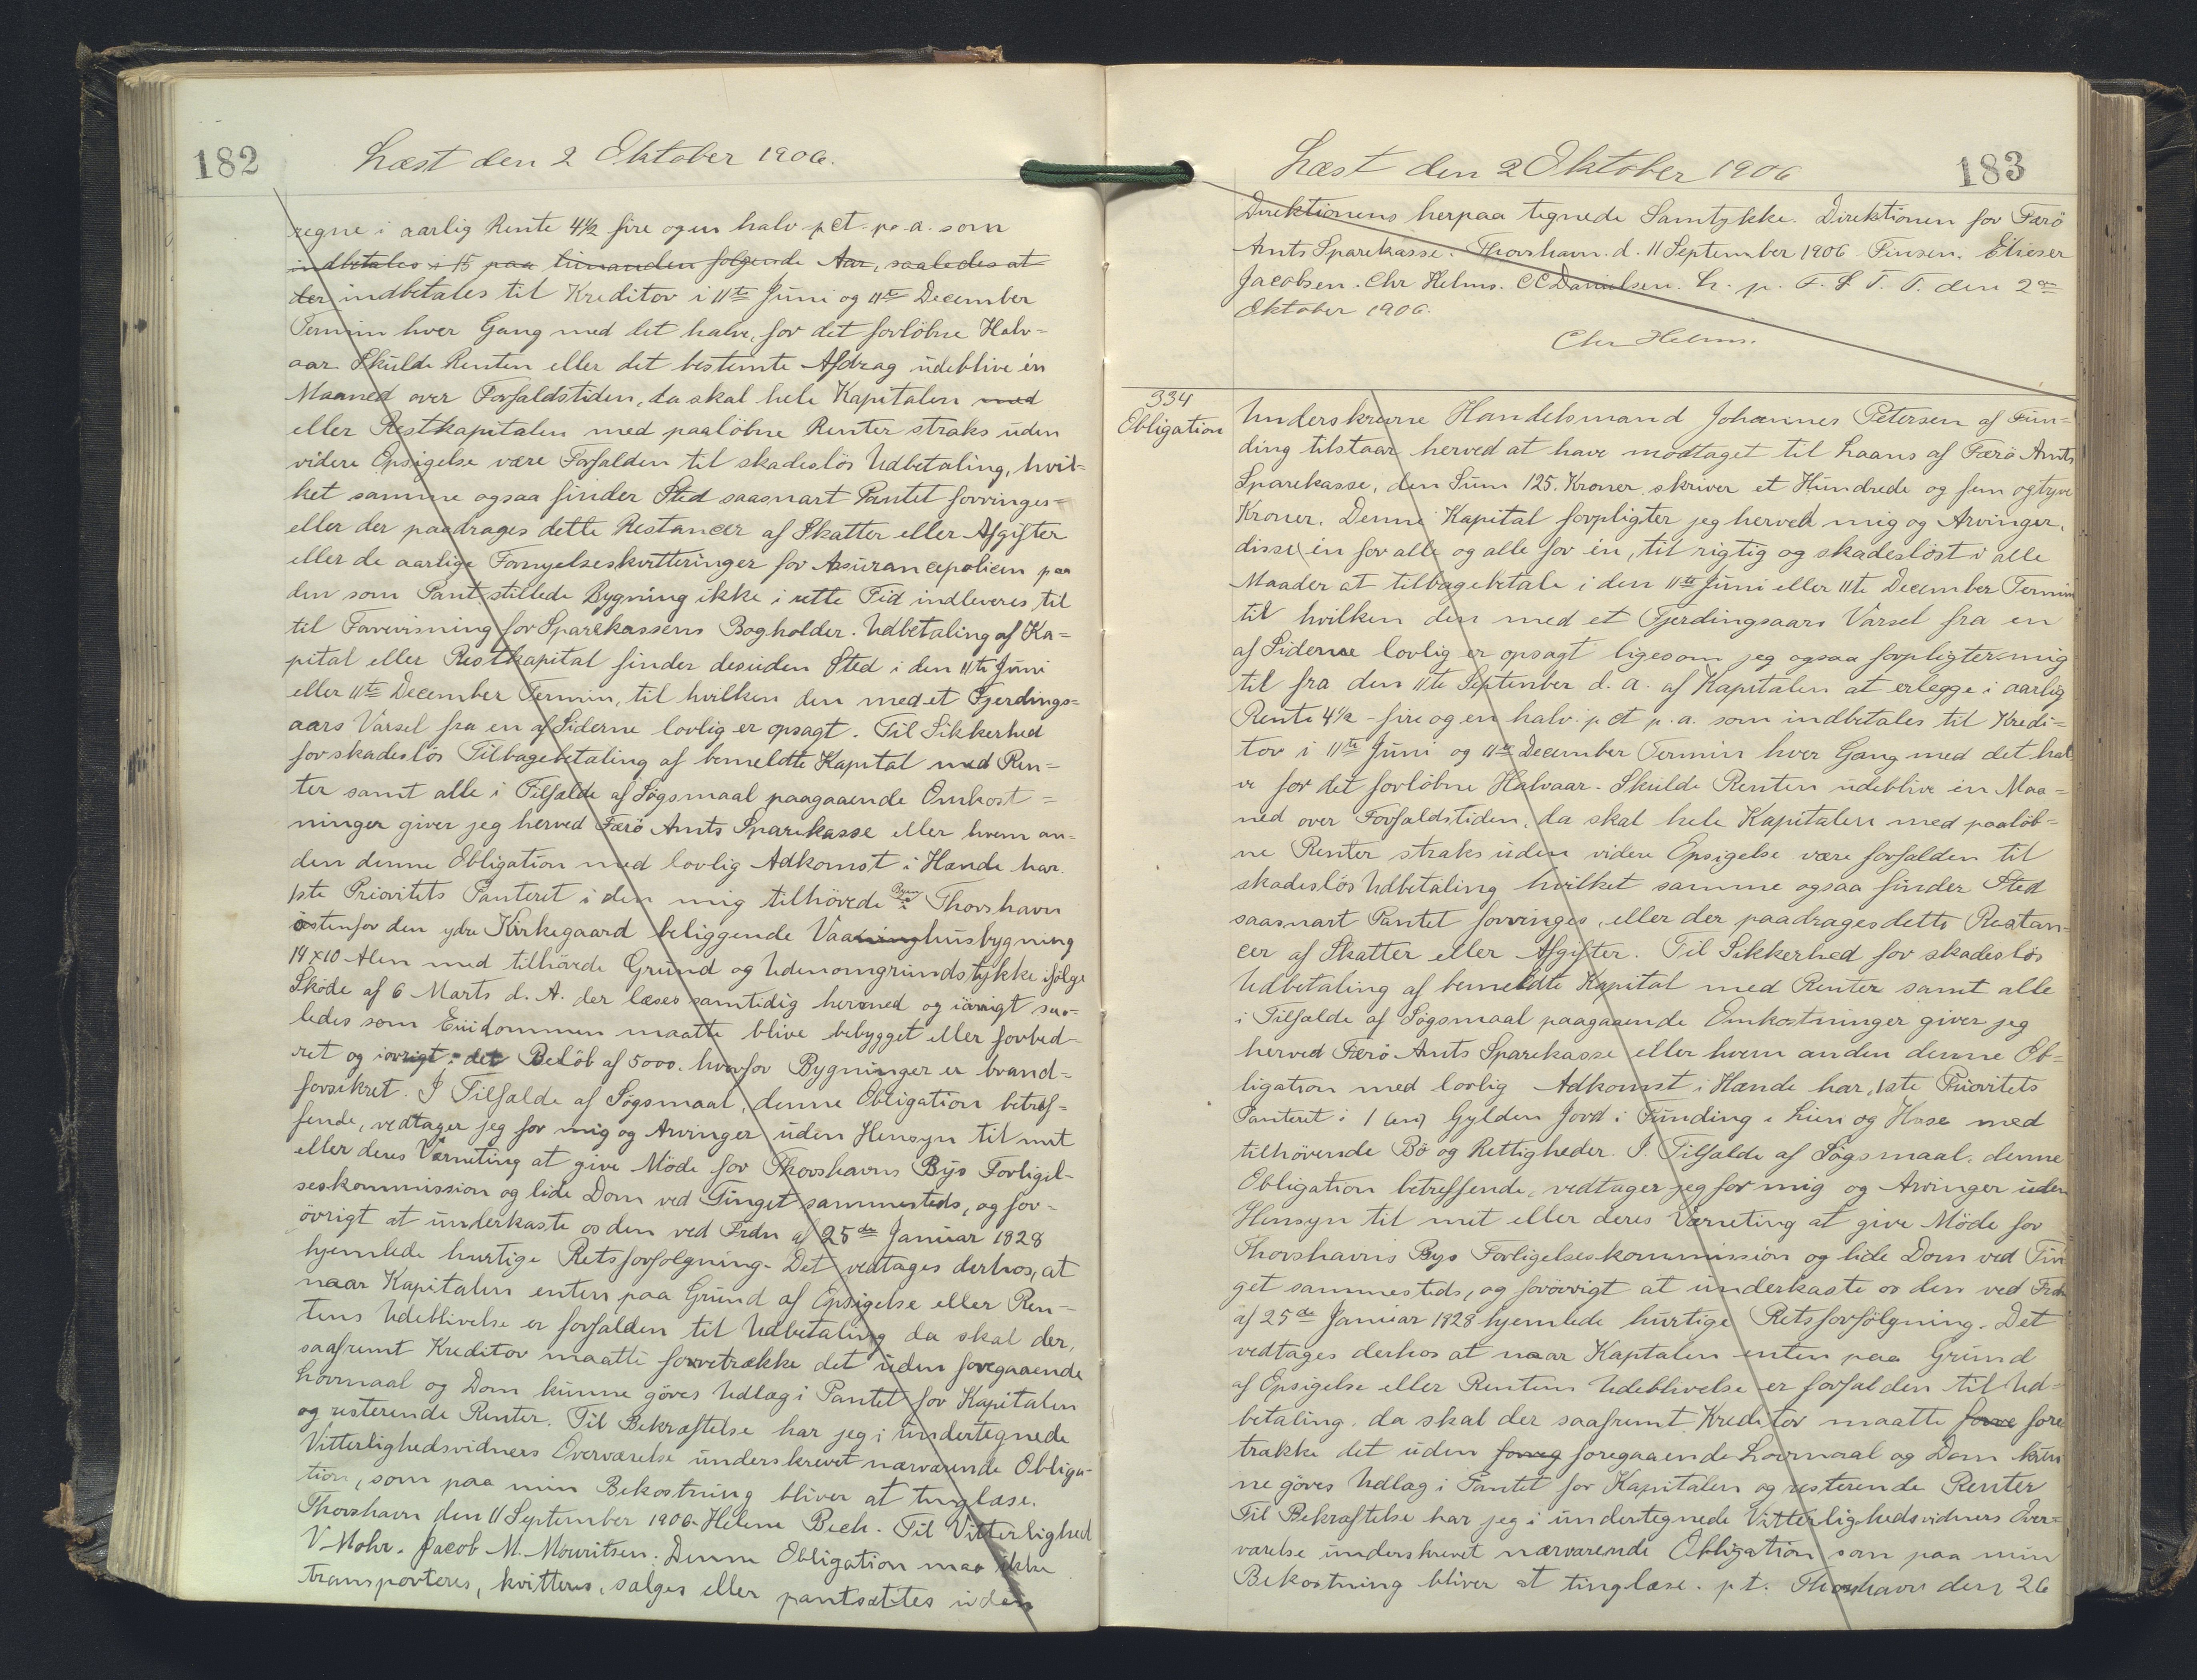 182
Læst den 2 Oktober 1906.
regne i aarlig Rente 4½ fire og en halv pCt. pr. a. som
indbetales i 15 paa hinanden følgende Aar, saaledes at
der indbetales til Kreditor i 11te Juni og 11te December
Termin hver Gang med det halve, for det forløbne Halv=
aar Skulde Renten eller det bestemte Afdrag udeblive én
Maaned over Forfaldstiden, da skal hele Kapitalen med
eller Restkapitalen med paaløbne Renter straks uden
videre Opsigelse være Forfalden til skadesløs Udbetaling, hvil=
ket samme ogsaa finder Sted saasnart Pantet forringes=
eller der paadrages dette Restancer af Skatter eller Afgifter
eller de aarlige Fornyelseskvitteringer for Assurancepolicen paa
den som Pant stillede Bygning ikke i rette Tid indleveres til
til Forevisning for Sparekassens Bogholder. Udbetaling af Ka=
pital eller Restkapital finder desuden Sted i den 11te Juni
eller 11te December Termin, til hvilken den med et Fjerdings=
aars Varsel fra en af Siderne lovlig er opsagt. Til Sikkerhed
for skadesløs Tilbagebetaling af bemeldte Kapital med Ren=
ter samt alle i Tilfælde af Søgsmaal paagaaende Omkost=
ninger giver jeg herved Færø Amts Sparekasse eller hvem an=
den denne Obligation med lovlig Adkomst i Hænde har.
1ste Prioritets Panteret i den mig tilhørede Thorshavn
østenfor den ydre Kirkegaard beliggende Vaaninghusbygning
14x10 Alen med tilhørede Grund og Udenomgrundstykke ifølge
Skøde af 6 Marts d. A. der læses samtidig hermed og iøvrigt saa=
ledes som Eiidommen maatte blive bebygget eller forbed=
ret og iøvrigt i det Beløb af 5000. hvorfor Bygninger er brand=
forsikret. I Tilfælde af Søgsmaal, denne Obligation betref=
fende, vedtager jeg for mig og Arvinger uden Hensyn til mit
eller deres Værneting at give Møde for Thorshavns Bys Forligel=
seskommission og lide Dom ved Tinget sammesteds, og for=
øvrigt at underkaste os den ved Frdn af 25de Januar 1828
hjemlede hurtige Retsforfølgning. Det vedtages derhos, at
naar Kapitalen enten paa Grund af Opsigelse eller Ren=
tens Udeblivelse er forfalden til Udbetaling da skal der,
saafremt Kreditor maatte foretrække det uden foregaaende
Lovmaal og Dom kunne gøres Udlæg i Pantet for Kapitalen
og resterende Renter. Til Bekræftelse har jeg i undertegnede
Vitterlighedsvidners Overværelse underskrevet nærværende Obliga=
tion, som paa min Bekostning bliver at tinglæse.
Thorshavn den 11 September 1906. Helene Bech. Til Vitterlighed
V. Mohr. Jacob M. Mouritsen. Denne Obligation maa ikke
transporteres, kvitteres, sælges eller pantsættes uden
Læst den 2 Oktober 1906
183
Direktionens herpaa tegnede Samtykke. Direktionen for Færø
Amts Sparekasse. Thorshavn. d. 11 September 1906 Finsen. Elieser
Jacobsen. Chr Helms. CC Danielsen. L. p. F. S. T. T. den 2den
Oktober 1906.
Chr Helms.
334
Obligation
Underskrevne Handelsmand Johannes Petersen af Fun=
ding tilstaar herved at have modtaget til Laans af Færø Amts
Sparekasse, den Sum 125. Kroner skriver et Hundrede og fem og tyve
Kroner. Denne Kapital forpligter jeg herved mig og Arvinger,
disse en for alle og alle for én, til rigtig og skadesløst i alle
Maader at tilbagebetale i den 11te Juni eller 11te December Termin
til hvilken den med et Fjerdingsaars Varsel fra en
af Siderne lovlig er opsagt ligesom jeg ogsaa forpligter mig
til fra den 11te September d. a. af Kapitalen at erlegge i aarlig
Rente 4½ - fire og en halv. p Ct p. a. som indbetales til Kredi=
tor i 11te Juni og 11te December Termin hver Gang med det hal
ve for det forløbne Halvaar. Skulde Renten udeblive én Maa=
ned over Forfaldstiden, da skal hele Kapitalen med paaløb=
ne Renter straks uden videre Opsigelse være forfalden til
skadesløs Udbetaling hvilket samme ogsaa finder Sted
saasnart Pantet forringes, eller der paadrages dette Restan=
cer af Skatter eller Afgifter. Til Sikkerhed for skadesløs
Udbetaling af bemeldte Kapital med Renter samt alle
i Tilfælde af Søgsmaal paagaaende Omkostninger giver jeg
herved Færø Amts Sparekasse eller hvem anden denne Ob=
ligation med lovlig Adkomst i Hænde har, 1ste Prioritets
Panteret i 1 (en) Gylden Jord i Funding i Lien og Huse med
tilhørende Bø og Rettigheder. I Tilfælde af Søgsmaal, denne
Obligation betreffende, vedtager jeg for mig og Arvinger uden
Hensyn til mit eller deres Værneting at give Møde for
Thorshavns Bys Forligelseskommission og lide Dom ved Tin
get sammesteds, og forøvrigt at underkaste os den ved Frdn
af 25de Januar 1828 hjemlede hurtige Retsforfølgning. Det
vedtages derhos at naar Kaptalen enten paa Grund
af Opsigelse eller Rentens Udeblivelse er forfalden til Ud=
betaling. da skal der saafremt Kreditor maatte forve fore
trække det uden foreg foregaaende Lovmaal og Dom kun
ne gøres Udlæg i Pantet for Kapitalen og resterende Renter
Til Bekræftelse har jeg i undertegnede Vitterlighedsvidners Over=
værelse underskrevet nærværende Obligation som paa min
Bekostning bliver at tinglæse. p.t. Thorshavn den 26